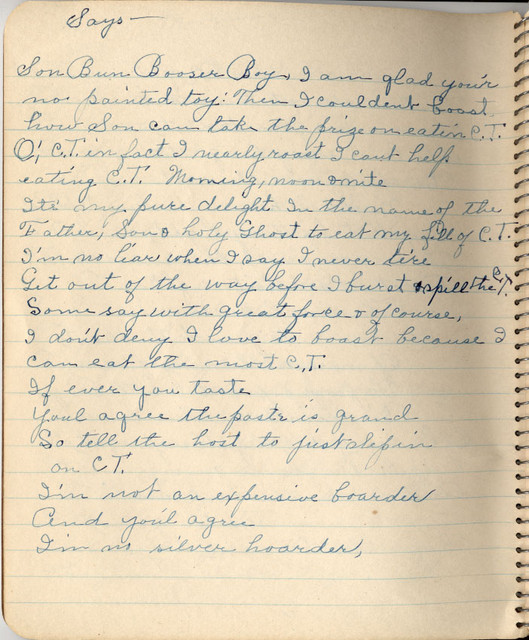 Says—
Son Bun Booser Boy, I am glad you'r
no painted toy: Then I couldent boast
how Son can take the prize on eatin C.T.
O', C.T. in fact I nearly roast I cant help
eating C.T. Morning, noon & nite
Its my pure delight In the name of the
Father, Son & holy Ghost to eat my fill of C.T.
I'm no liar when I say I never tire
Get out of the way befor I burst & spill the C.T.
Some say with great force & of course,
I don't deny I love to boast because I
can eat the most C.T.
If ever you taste
Youl agree the paste is grand
So tell the host to just slip in
on C.T.
I'm not an expensive boarder
And you'l agree
I'm no silver hoarder,